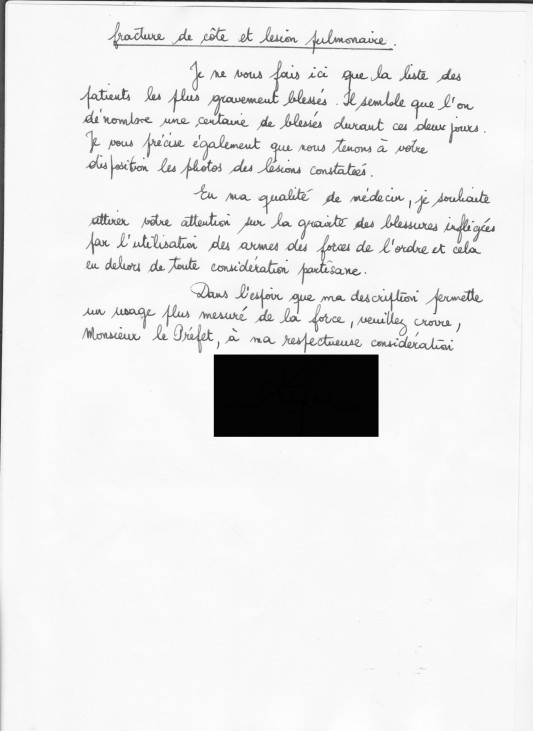 fracture de côte et lésion pulmonaire.
Je ne vous fais ici que la liste des
patients les plus gravement blessés. Il semble que l'on
dénombre une centaine de blessés durant ces deux jours.
Je vous précise également que nous tenons à votre
disposition les photos des lésions constatées.
En ma qualité de médecin, je souhaite
attirer votre attention sur la gravité des blessures infligées
par l'utilisation des armes des forces de l'ordre et cela
en dehors de toute considération partisane.
Dans l'espoir que ma description permette
un usage plus mesuré de la force, veuillez croire,
Monsieur le Préfet, à ma respectueuse considération